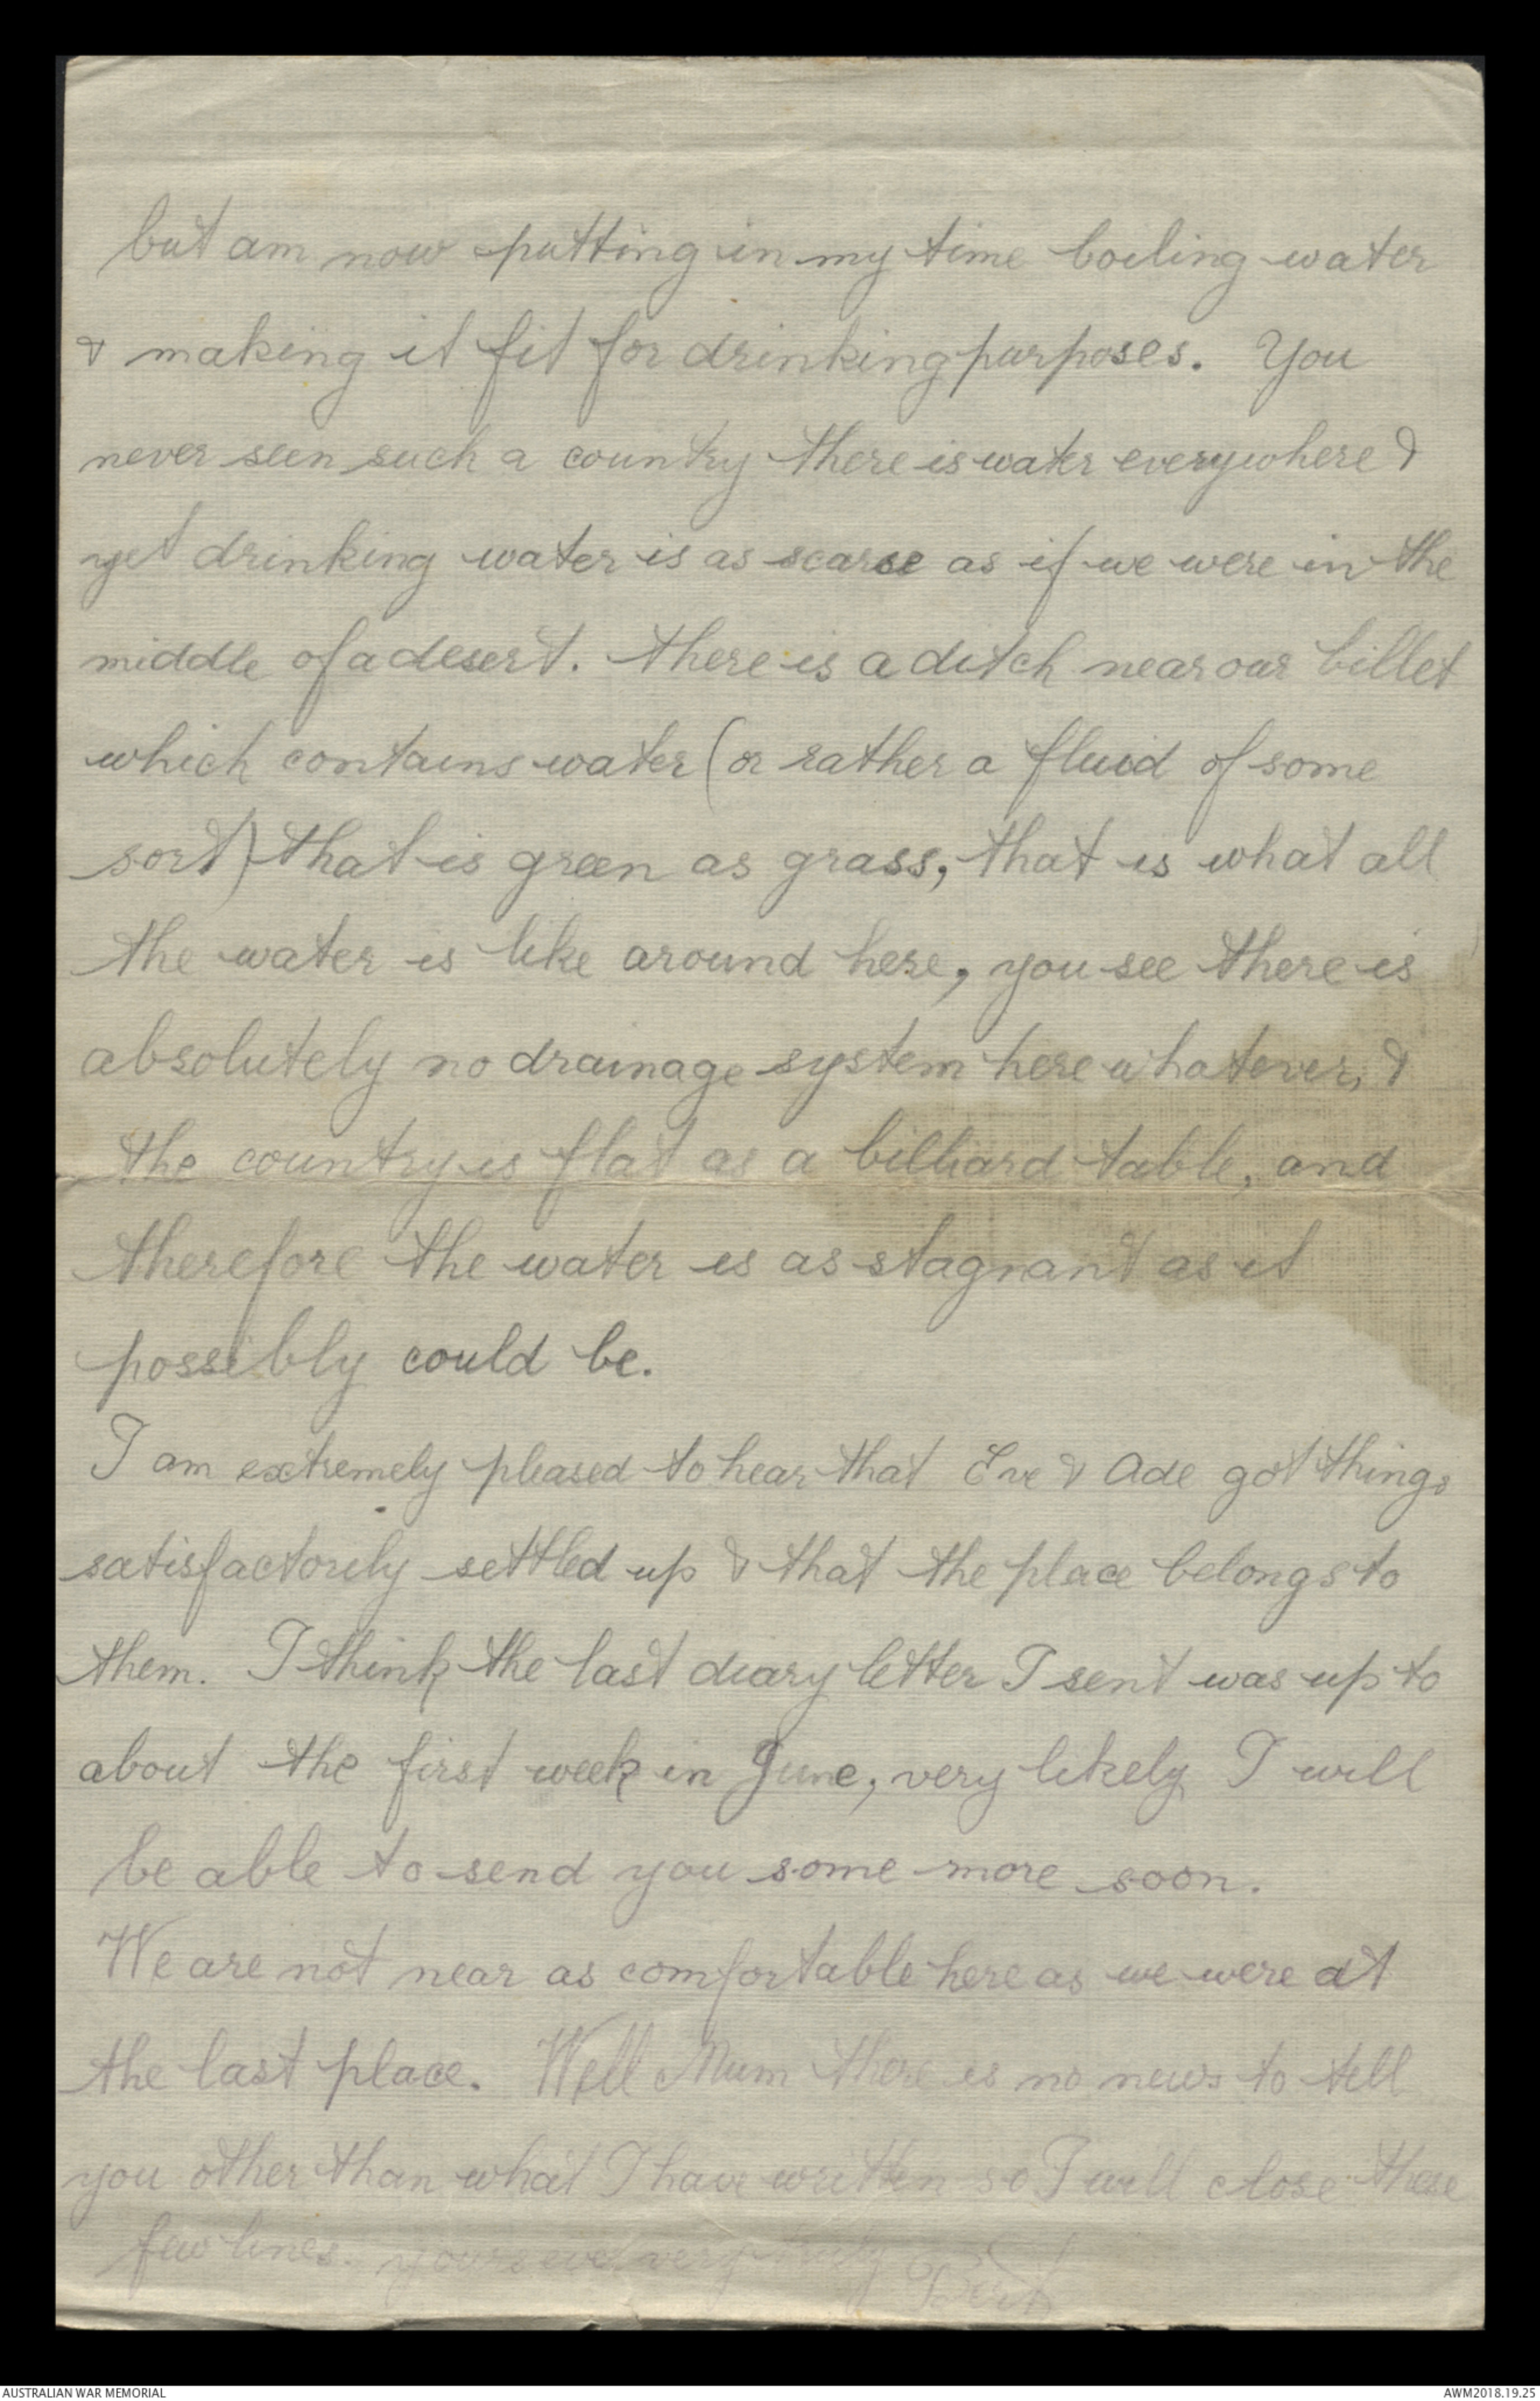 but am now putting in my time boiling water
& making it fit for drinking purposes. You
never seen such a country there is water everywhere &
yet drinking water is as scarse as if we were in the
middle of a desert. There is a ditch near our billet
which contains water (or rather a fluid of some
sort) that is green as grass, that is what all
the water is like around here, you see there is
absolutely no drainage system here whatever, &
the country is flat as a billiard table, and
therefore the water is as stagnant as it
possibly could be.
I am extremely pleased to hear that Eve & Ade got things
satisfactorily settled up & that the place belongs to
them. I think the last diary letter I sent was up to
about the first week in June, very likely I will
be able to send you some more soon.
We are not near as comfortable here as we were at
the last place. Well Mum there is no news to tell
you other than what I have written so I will close these
few lines. yours ever very truly Bert
AUSTRALIAN WAR MEMORIAL
AWM2018.19.25